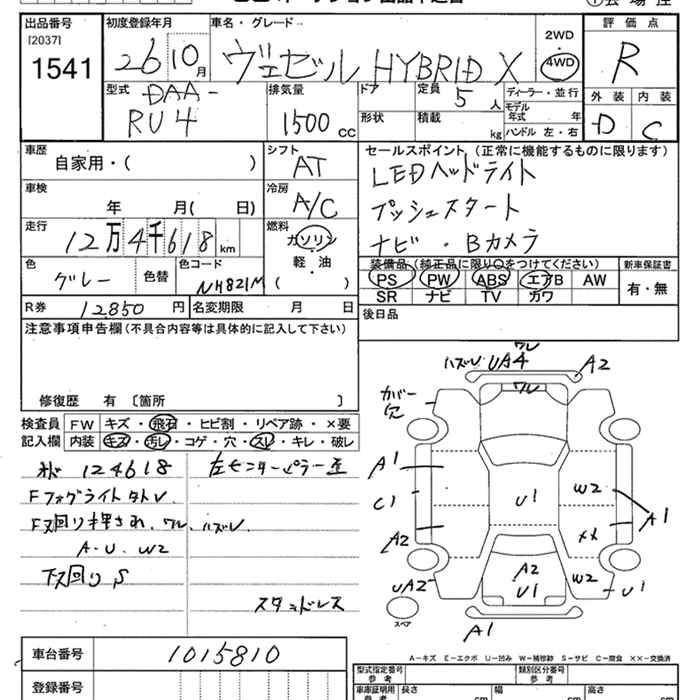 出品番号 初度登録年月 車名・グレード 2WD 評価点
[2037] 26 10月 ヴェゼル HYBRID X 4WD R
1541
型式 排気量 ドア 定員 ディーラー・並行 外装 内装
DAA- 5人 モデル年式 年 D C
RU4 1500cc 形状 積載 kg ハンドル 左・右
車歴 自家用・( ) シフト AT セールスポイント (正常に機能するものに限ります)
LEDヘッドライト
車検 年 月( 日) 冷房 A/C プッシュスタート
走行 12万4千618km 燃料 ガソリン 軽・油 ( ) ナビ・Bカメラ
色 グレー 色替 色コード NH821M 装備品 (純正品に限り○をつけてください) 新車保証書
PS PW ABS エアB AW 有・無
SR ナビ TV カワ
R券 12850円 名変期限 月 日 後日品
注意事項申告欄(不具合内容等は具体的に記入して下さい)
修復歴 有 〔箇所 〕
検査員 FW キズ・飛石・ヒビ割・リペア跡・×要
記入欄 内装 キズ・汚レ・コゲ・穴・スレ・キレ・破レ
124618 左センターピラー
Fフォグライト
F 回り押され、ワレ、ハズレ
A・U・W2
下回りS
スタッドレス
車台番号 1015810
登録番号
ワレ
ハズレ UA4 A2
ワレ
カバー欠
A1
C1
A2
UA2
U1
W2
A1
××
A2
U1
W2
U1
A1
スペア
A-キズ E-エクボ U-凹み W-補修跡 S-サビ C-腐食 ××-交換済
型式指定番号 参考 類別区分番号 参考
車庫証明用 参考 長さ cm 幅 cm 高さ cm